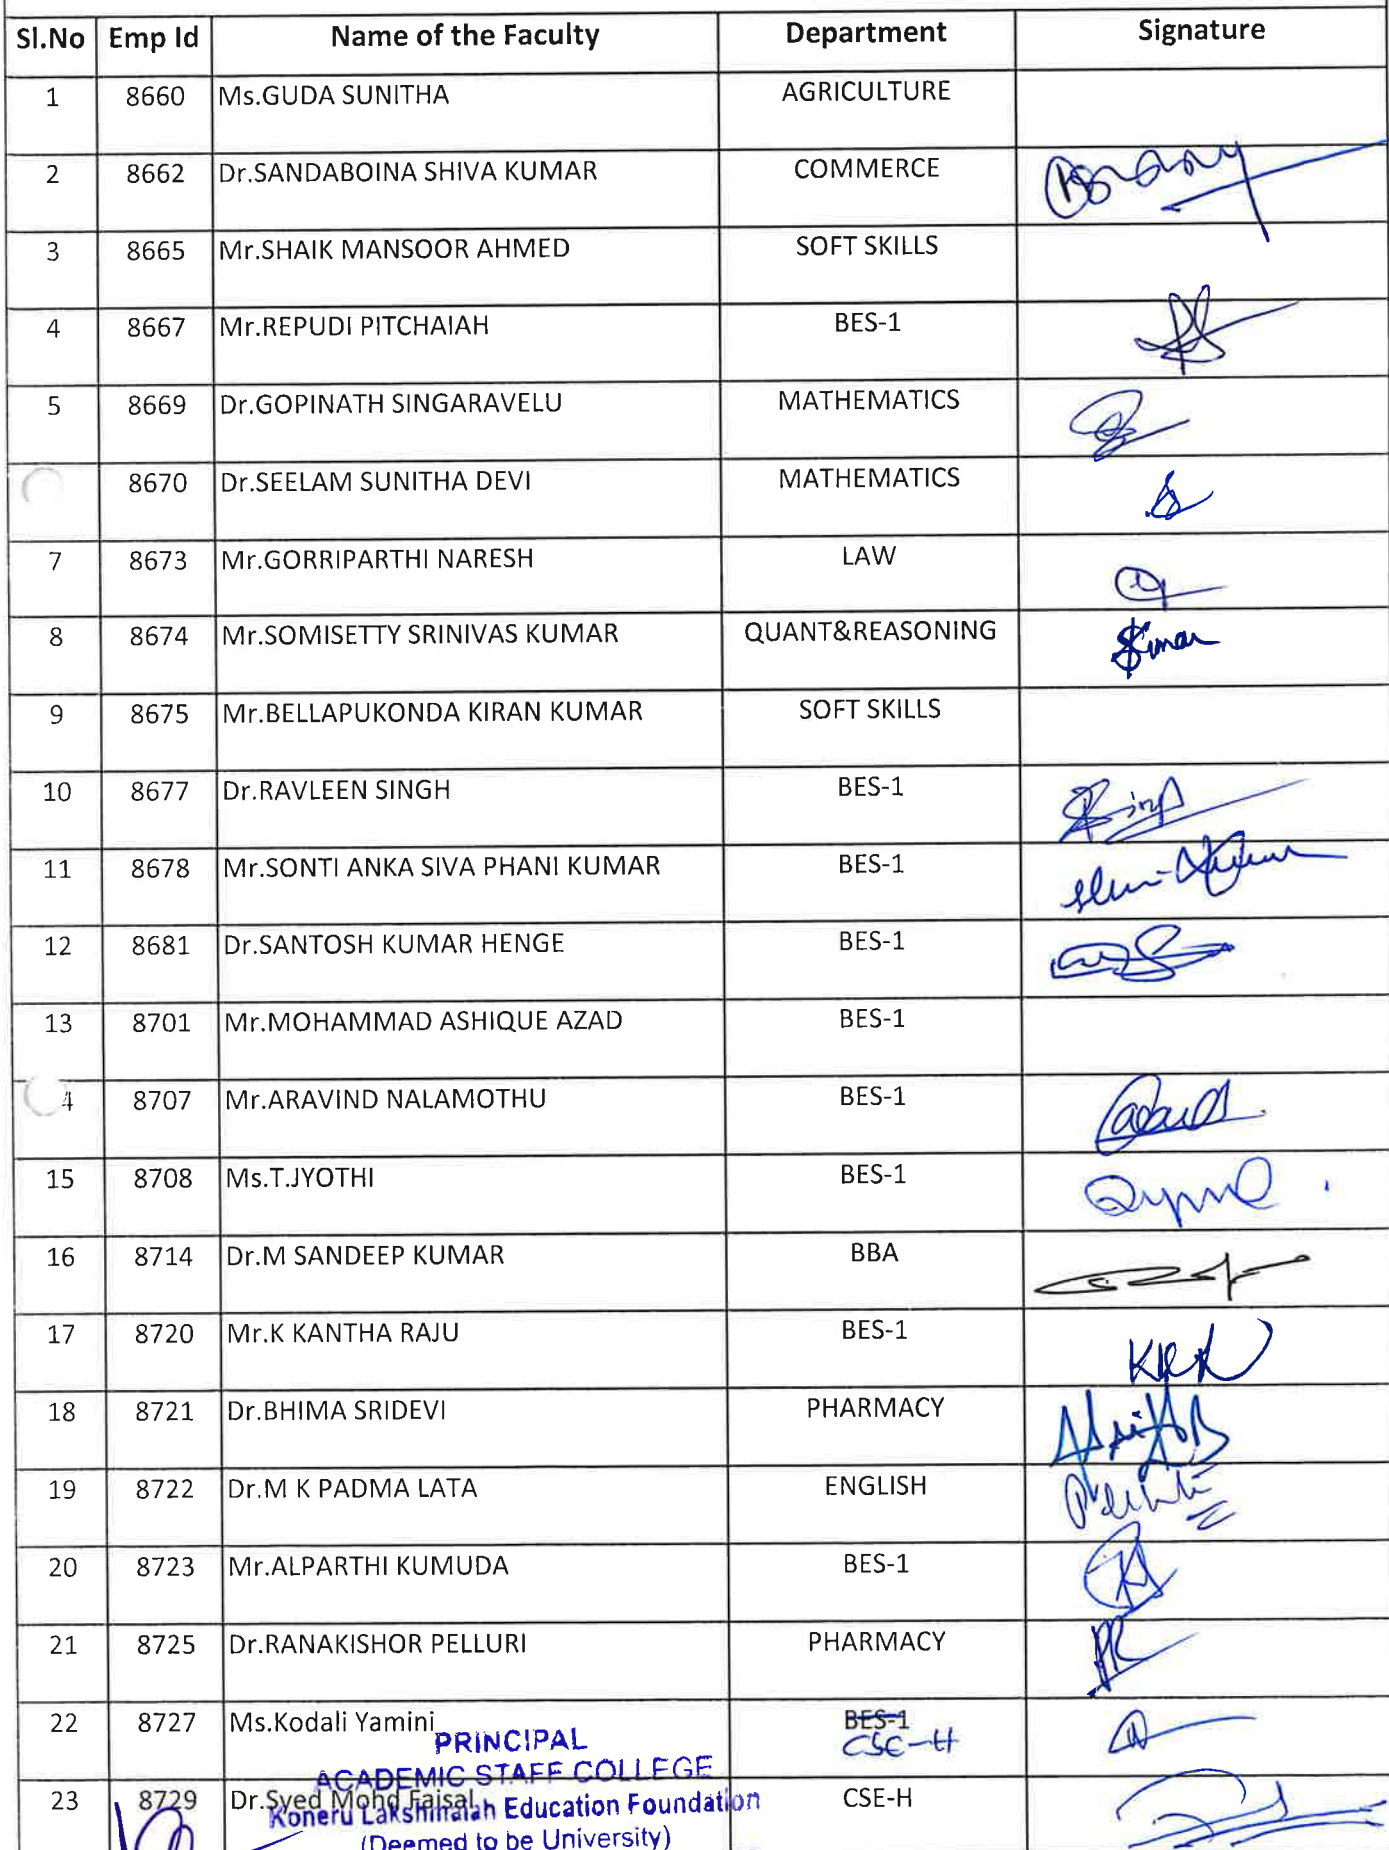 Sl.No Emp Id Name of the Faculty Department Signature
1 8660 Ms.GUDA SUNITHA AGRICULTURE
2 8662 Dr.SANDABOINA SHIVA KUMAR COMMERCE
3 8665 Mr.SHAIK MANSOOR AHMED SOFT SKILLS
4 8667 Mr.REPUDI PITCHAIAH BES-1
5 8669 Dr.GOPINATH SINGARAVELU MATHEMATICS
8670 Dr.SEELAM SUNITHA DEVI MATHEMATICS
7 8673 Mr.GORRIPARTHI NARESH LAW
8 8674 Mr.SOMISETTY SRINIVAS KUMAR QUANT&REASONING
9 8675 Mr.BELLAPUKONDA KIRAN KUMAR SOFT SKILLS
10 8677 Dr.RAVLEEN SINGH BES-1
11 8678 Mr.SONTI ANKA SIVA PHANI KUMAR BES-1
12 8681 Dr.SANTOSH KUMAR HENGE BES-1
13 8701 Mr.MOHAMMAD ASHIQUE AZAD BES-1
4 8707 Mr.ARAVIND NALAMOTHU BES-1
15 8708 Ms.T.JYOTHI BES-1
16 8714 Dr.M SANDEEP KUMAR BBA
17 8720 Mr.K KANTHA RAJU BES-1
18 8721 Dr.BHIMA SRIDEVI PHARMACY
19 8722 Dr.M K PADMA LATA ENGLISH
20 8723 Mr.ALPARTHI KUMUDA BES-1
21 8725 Dr.RANAKISHOR PELLURI PHARMACY
22 8727 Ms.Kodali Yamini BES-1
CSE-H
PRINCIPAL
ACADEMIC STAFF COLLEGE
23 8729 Dr.Syed Mohd Faisal CSE-H
Koneru Lakshmaiah Education Foundation
(Deemed to be University)